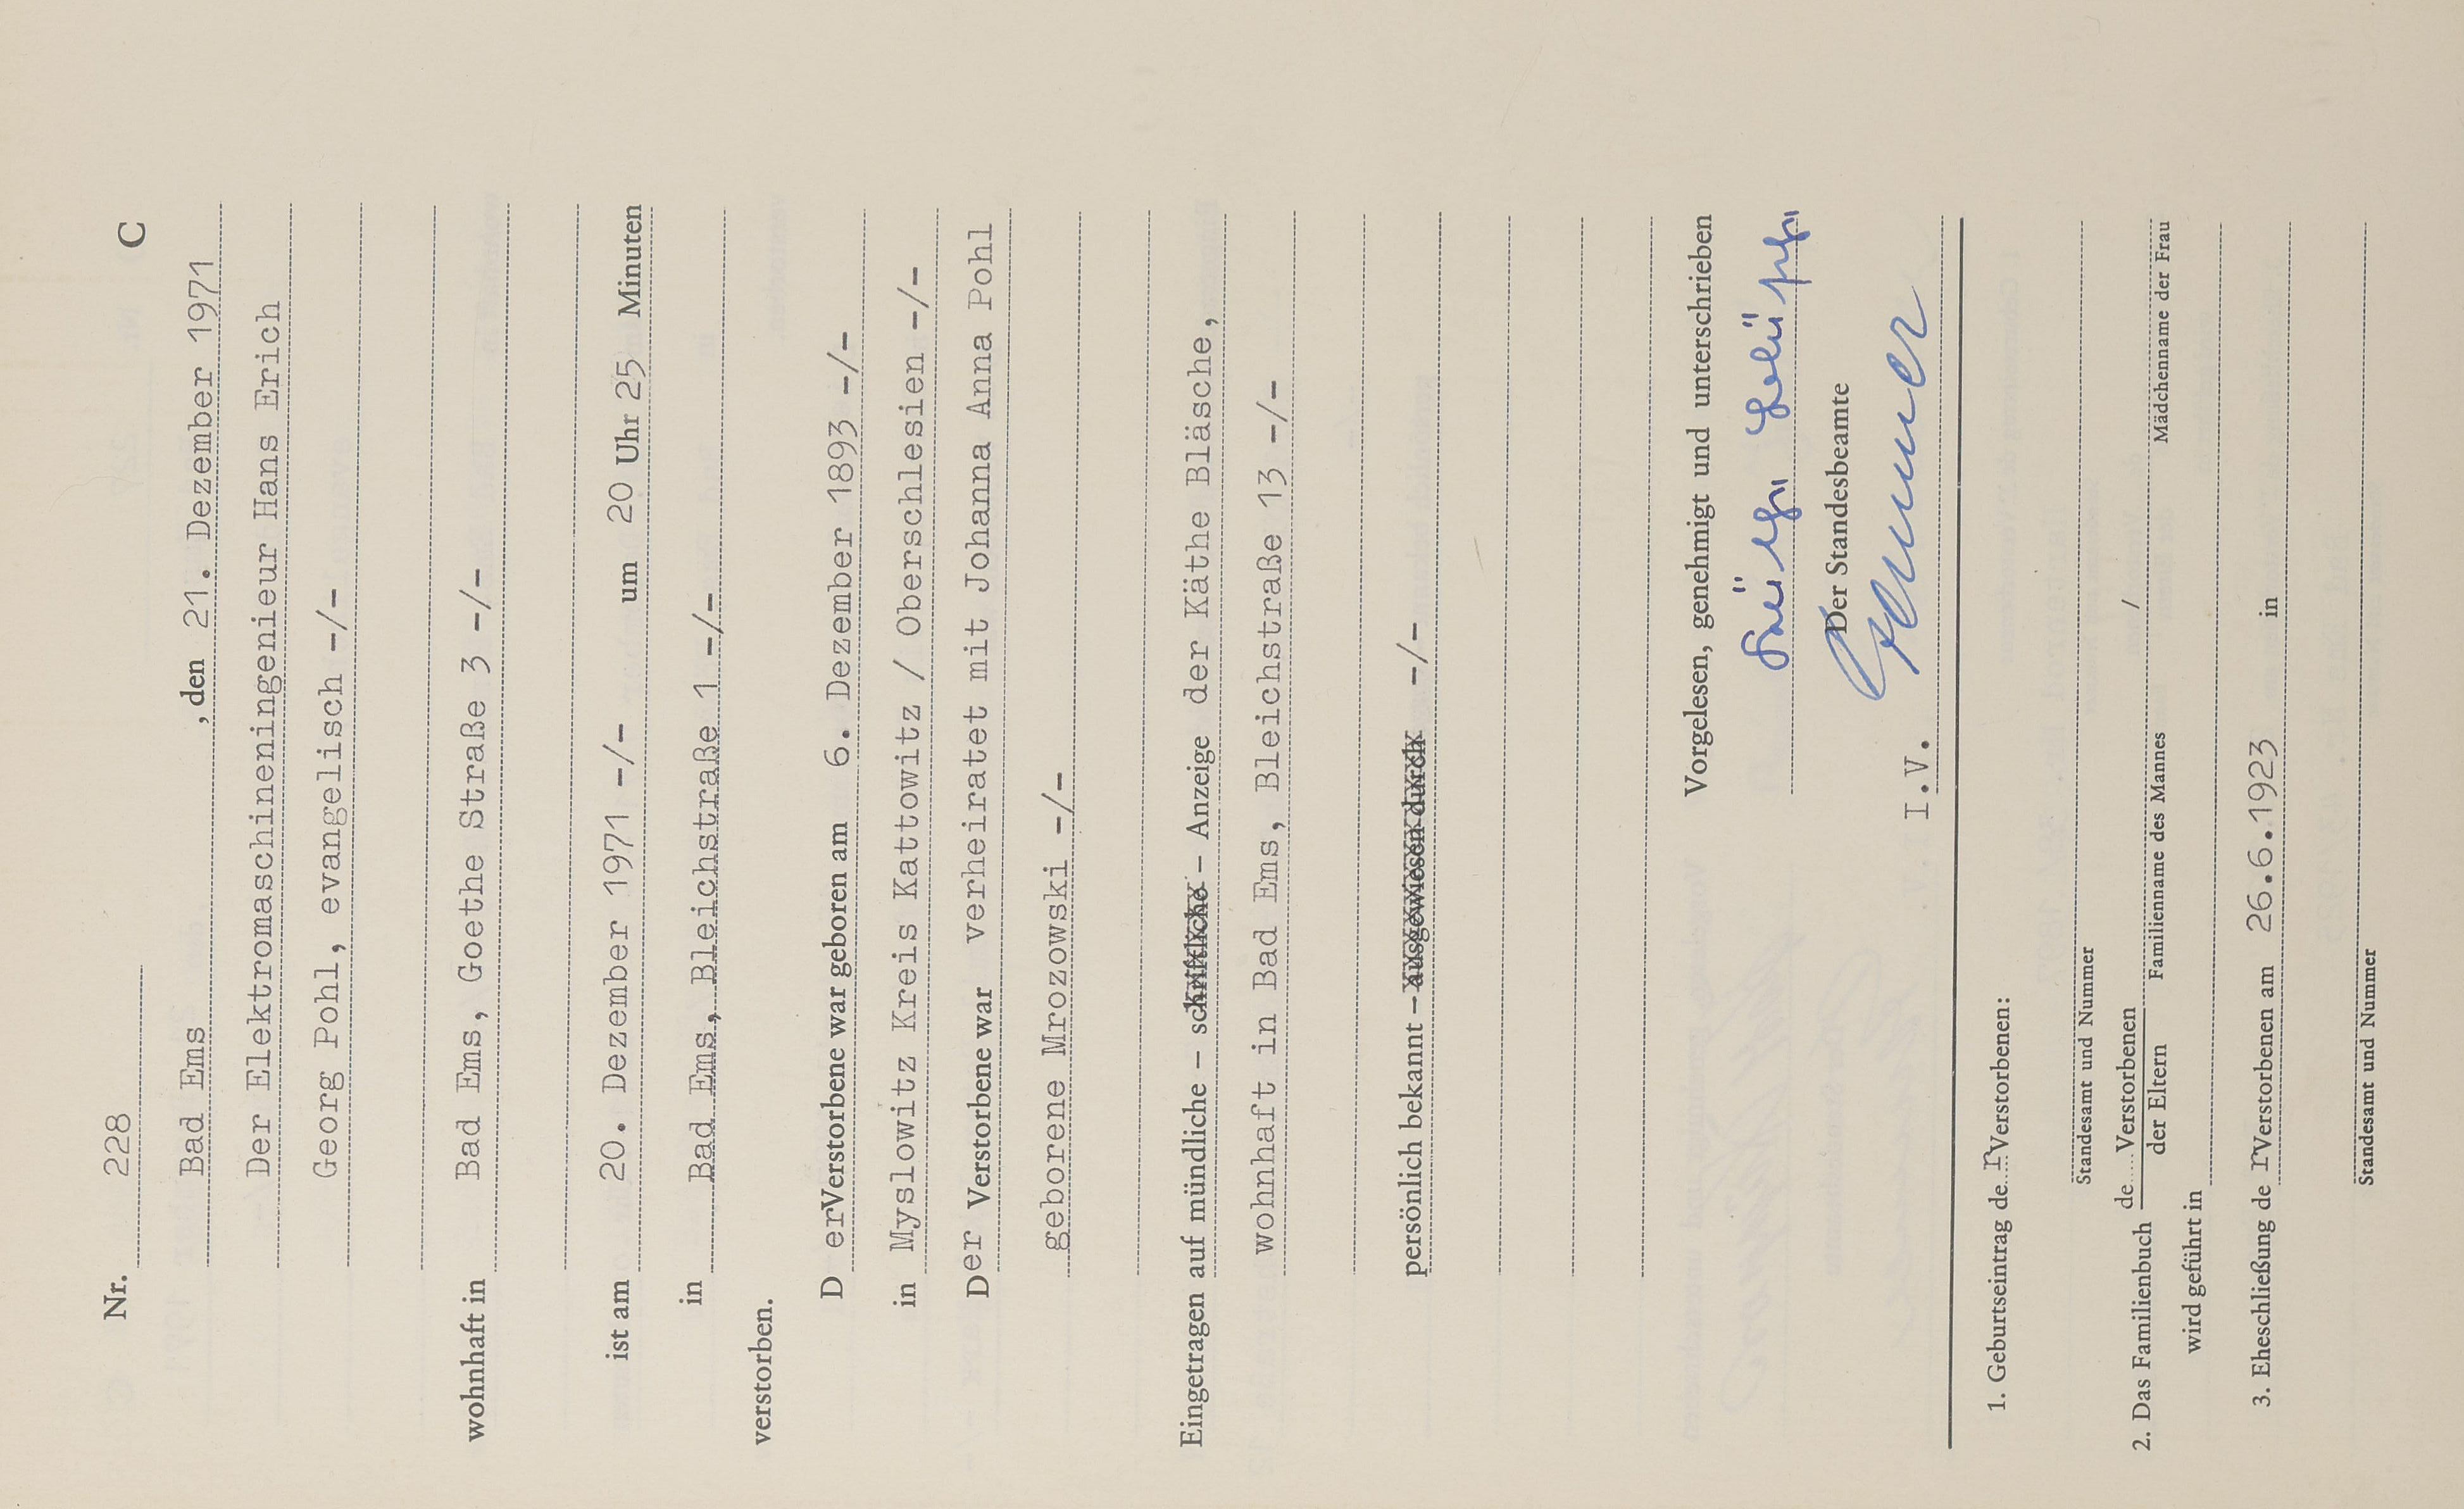 Nr. 228 C
Bad Ems , den 21. Dezember 1971
Der Elektromaschineningenieur Hans Erich
Georg Pohl, evangelisch -/-
wohnhaft in Bad Ems, Goethe Straße 3 -/-
ist am 20. Dezember 1971 -/- um 20 Uhr 25 Minuten
in Bad Ems, Bleichstraße 1 -/-
verstorben.
D er Verstorbene war geboren am 6. Dezember 1893 -/-
in Myslowitz Kreis Kattowitz / Oberschlesien -/-
Der Verstorbene war verheiratet mit Johanna Anna Pohl
geborene Mrozowski -/-
Eingetragen auf mündliche – schriftliche – Anzeige der Käthe Bläsche,
wohnhaft in Bad Ems, Bleichstraße 13 -/-
persönlich bekannt – ausgewiesen durch -/-
Vorgelesen, genehmigt und unterschrieben
Der Standesbeamte
I.V.
1. Geburtseintrag de r Verstorbenen:
Standesamt und Nummer
2. Das Familienbuch de Verstorbenen /
der Eltern Familienname des Mannes Mädchenname der Frau
wird geführt in
3. Eheschließung de r Verstorbenen am 26.6.1923 in
Standesamt und Nummer